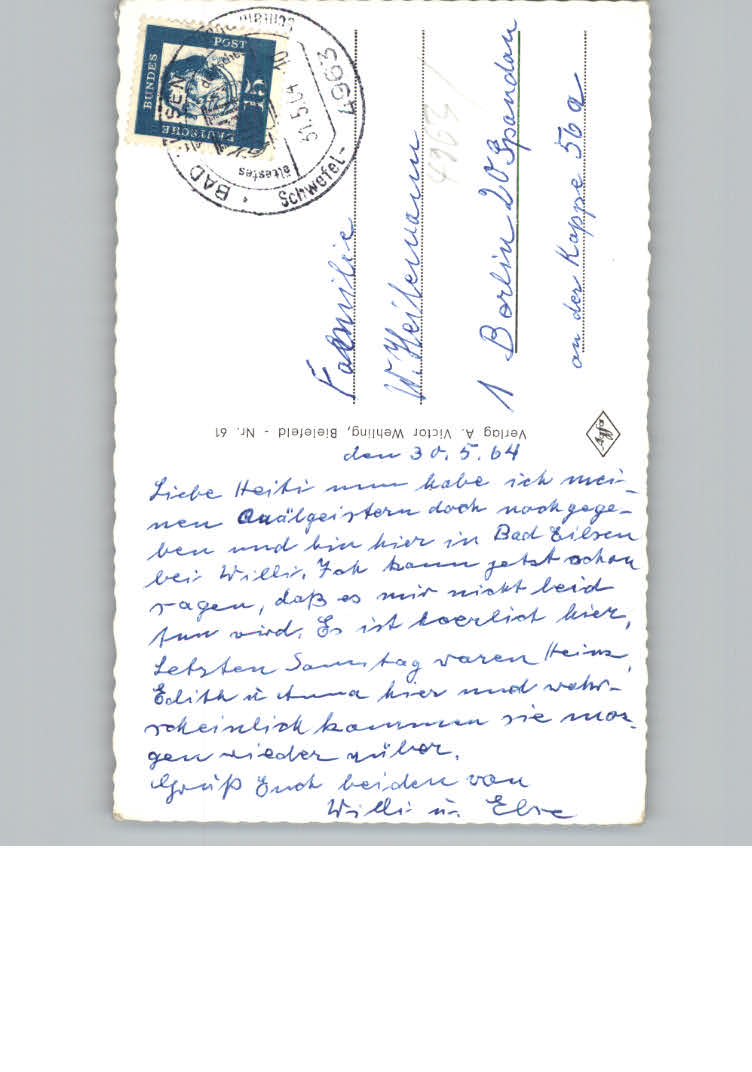 BUNDES
POST
DEUTSCHE
15
4963
BAD EILSEN
ältestes
Schwefel-
Schlammbad
31.5.64
10
4963
Familie
W. Heilemann
1 Berlin 20 Spandau
an der Kappe 56a
Verlag A. Victor Wehling, Bielefeld - Nr. 61
Agfa
den 30.5.64
Liebe Heiti nun habe ich mei-
nen Quälgeistern doch nachgege-
ben und bin hier in Bad Eilsen
bei Willi. Ich kann jetzt schon
sagen, daß es mir nicht leid
tun wird. Es ist herrlich hier,
Letzten Samstag waren Heinz,
Edith u Anna hier und wahr-
scheinlich kommen sie mor-
gen wieder rüber.
Grüß Euch beiden von
Willi u. Else